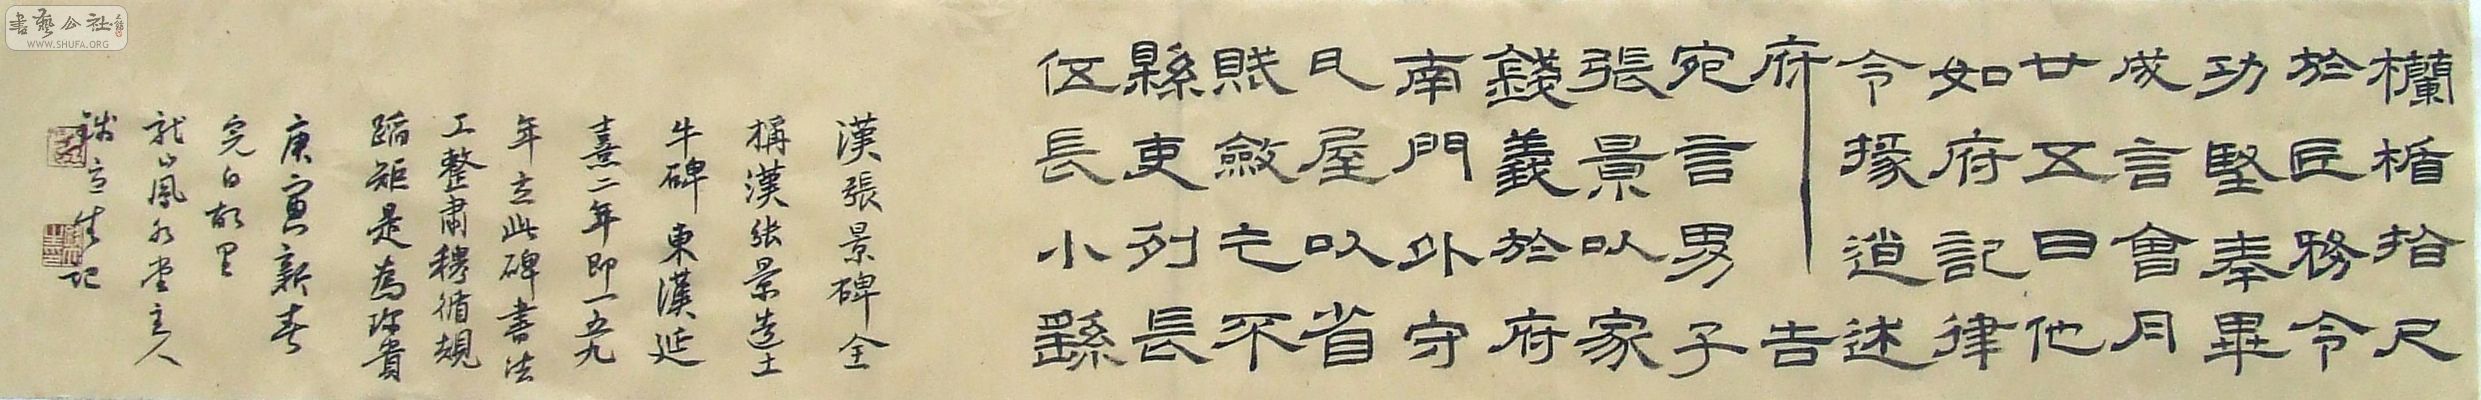 欄楯指尺
於匠務令
功堅奉畢
成言會月
廿五日他
如府記律
令掾逍述
府告
宛言男子
張景以家
錢義於府
南門外守
瓦屋以省
賦斂之不
縣吏列長
伍長小繇
漢張景碑全
稱漢张景造土
牛碑東漢延
熹二年即一五九
年立此碑書法
工整肅穆循規
蹈矩是為珍貴
庚寅新春
完白故里
龍山鳳水堂主人
記
書藝公社
WWW.SHUFA.ORG